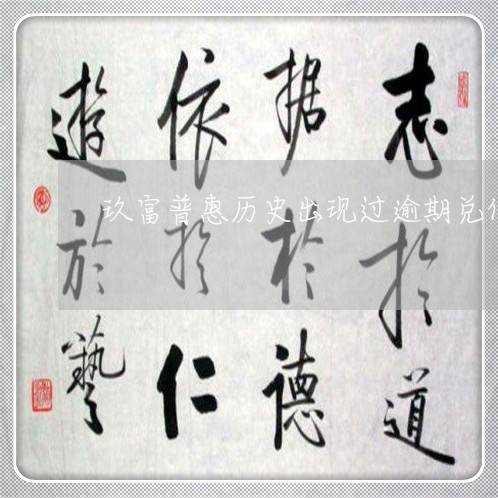 志於道
据於德
依於仁
遊於藝
玖富普惠历史出现过逾期兑